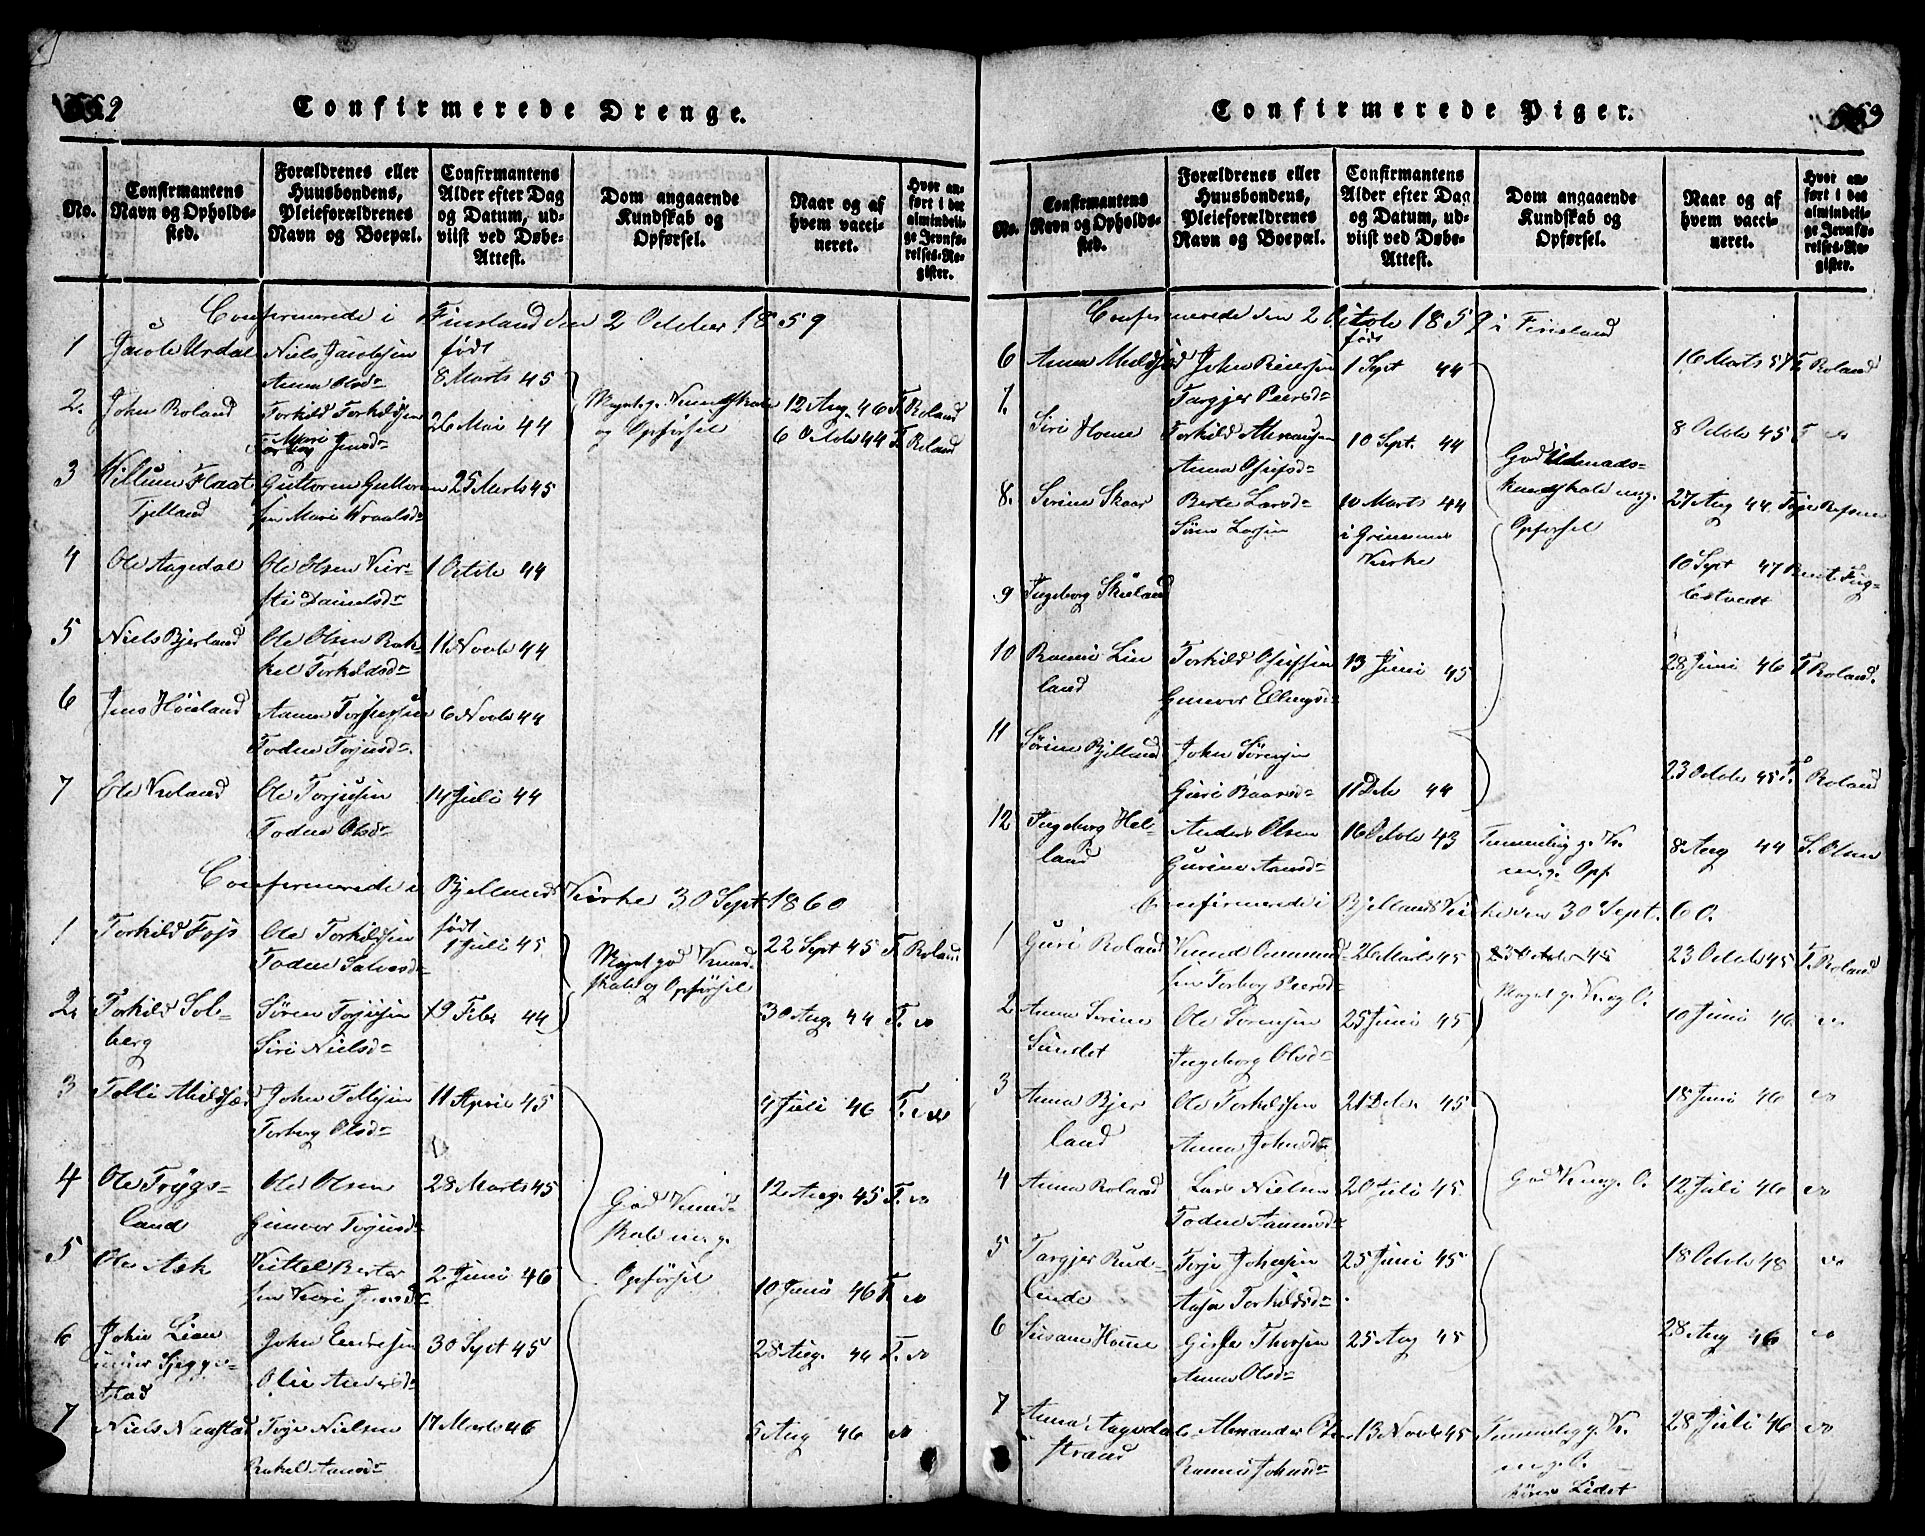 552
Confirmerede Drenge.
No.
Confirmantens Navn og Opholdssted.
Forældrenes eller Huusbondens, Pleieforældrenes Navn og Boepæl.
Confirmantens Alder efter Dag og Datum, udviist ved Døbe-Attest.
Dom angaaende Kundskab og Opførsel.
Naar og af hvem vaccineret.
Hvor anført i det almindelige Jevnførelses-Register.
Confirmerede i Finsland den 2 October 1859
1 Jacob Urdal Niels Jacobsen født
Anna Olsd 8 Marts 45
2. John Roland Torkild Torkildsen 26 Mai 44 Meget g. Kundskab 12 Aug. 46 T. Roland
Mari Jensd og Opførsel 6 Octob 44 T. Roland
3 Villum Flaat Guttorm Guttorm 25 Marts 45
Tjelland sen Mari Wraalsd
4 Ole Aagedal Ole Olsen Kir- 1 Octob 44
sti Danielsd
5 Niels Bjerland Ole Olsen Rak- 11 Novb 44
kel Torkildsd
6 Jens Høieland Aanen Torjusen 6 Novb 44
Todne Torjusd
7 Ole Roland Ole Torjusen 14 Juli 44
Todne Olsd
Confirmerede i Bjellands Kirke 30 Sept 1860
født
1 Torkild Foss Ole Torkildsen 1 Juli 45 Meget god Kund- 22 Sept 45 T. Roland
Todne Salvesd skab og Opførsel
2. Torkild Sol- Søren Torjusen 19 Febr 44 30 Aug. 44 T. do
berg Siri Nielsd
3 Tolli Midtsjød John Tollisen 11 April 45 4 Juli 46 T. do
Torborg Olsd
4 Ole Trygs- Ole Olsen 28 Marts 45 God Kund- 12 Aug. 45 T. do
land Gunvor Torjusd skab meg.
5 Ole Ask Kittel Berter 2 Juni 46 Opførsel 10 Juni 46 T. do
sen Kari Jensd
6 John Lien John Endresen 30 Sept 45 28 Aug. 46 T. do
Olie Andersd
7 Niels Naustad Terje Nielsen 17 Marts 46 5 Aug 46 do
Rakel Aanesd
553
Confirmerede Piger.
No.
Confirmantens Navn og Opholdssted.
Forældrenes eller Huusbondens, Pleieforældrenes Navn og Boepæl.
Confirmantens Alder efter Dag og Datum, udviist ved Døbe-Attest.
Dom angaaende Kundskab og Opførsel.
Naar og af hvem vaccineret.
Hvor anført i det almindelige Jevnførelses-Register.
Confirmerede den 2 Octob 1859 i Finsland
født
6 Anna Midtsjød John Reiersen 1 Sept 44 16 Marts 57 T. Roland
7. Targjer Peersd
Siri Homme Torkild 10 Sept. 44 God Udmads- 8 Octob 45 T do
Anna Osufsd kundskab meg.
8. Serine Skaar Berte Larsd 10 Marts 44 Opførsel 27 Aug 44
Søren Larsen i
Kirke
9 Ingeborg Skieland 10 Sept 47 Berit Fug-
lestvedt
10 Ronni Lin Torkild Osufsen 13 Juni 45 28 Juni 46 T. Roland.
land Gunvor Ellingsd
11 Sørine Bjelland John Sørensen
Guri Baarsd 11 Dec 44 23 Octob 45 T. Roland
12 Ingeborg Hel- Anders Olsen 16 Octob 43 Temmelig g. K. 8 Aug 44 S. Olsen
land Gurine Aanesd meg. Opf.
Confirmerede i Bjellands Kirke den 30 Sept. 60.
1 Guri Roland Knud Ommund 26 Marts 45 23 October 45 23 Octob 45 T. Roland
sen Torborg Peersd Meget g. K. og O.
2 Anna Serine Ole Sørensen 25 Juni 45 10 Juni 46 do
Sundet Ingeborg Olsd
3 Anna Bjer Ole Torkildsen 21 Debr 45 18 Juni 46 do
land Anna Johnsd
4 Anna Roland Lars Nielsen 20 Juli 45 God K. meg. O. 12 Juli 46 do
Todne Aanensd
5 Targjer Rud- Terje Johnsen 25 Juni 45 18 Octob 48 do
linde Aasa Torkildsd
6 Susann Homme Gisle Thorsen 25 Aug 45 28 Aug 46 do
Anna Olsd
7 Anna Aagedal Alexander 13 Novb 45 Temmelig g. K. 28 Juli 46 do
strand Ronni Johnsd meg. O.